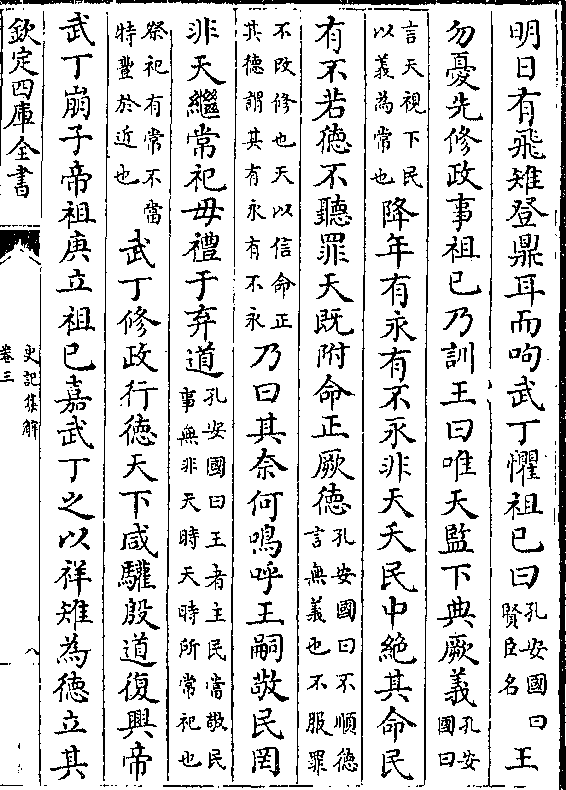 明日有飛雉登鼎耳而呴武丁懼祖己曰孔安國曰賢臣名王
勿憂先修政事祖己乃訓王曰唯天監下典厥義孔安國曰
言天視下民以義為常也降年有永有不永非天夭民中絶其命民
有不若徳不聽罪天既附命正厥徳孔安國曰不順徳言無義也不服罪
不改修也天以信命正其徳謂其有永有不永乃曰其奈何嗚呼王嗣敬民罔
非天繼常祀毋禮于弃道孔安國曰王者主民當敬民事無非天時天時所常祀也
祭祀有常不當特豐於近也武丁修政行徳天下咸驩殷道復興帝
武丁崩子帝祖庚立祖己嘉武丁之以祥雉為徳立其
欽定四庫全書
史記集解
卷三
八